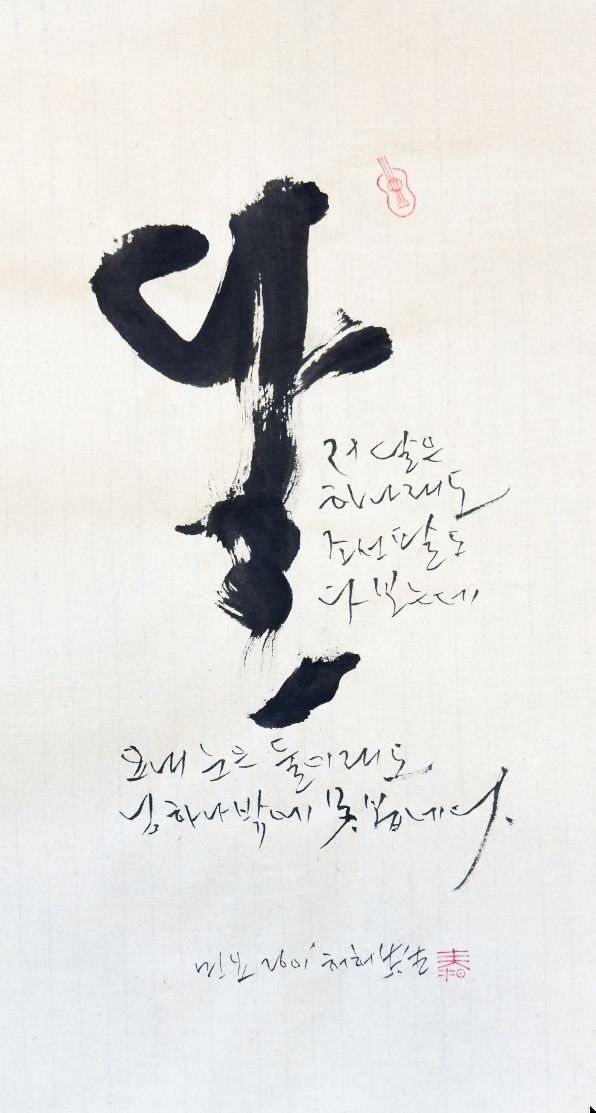 달
저 달은
하나래도
조선팔도
다 보는데
요내 눈은 둘이래도
님 하나밖에 못 봅네다.
민요